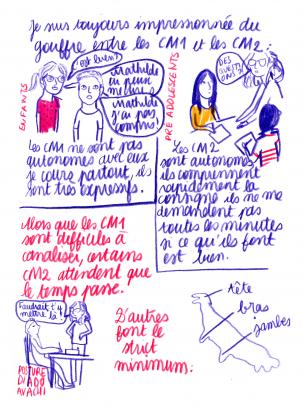 Je suis toujours impressionnée du
gouffre entre les CM1 et les CM2:
ENFANTS
c'est bien?
Mathilde
tu peux
m'aider?
Mathilde
j'ai pas
compris!
PRÉ ADOLESCENTS
DES
QUESTI
ONS?
Les CM1 ne sont pas
autonomes avec eux
je cours partout, ils
sont très expressifs.
Les CM2
sont autonomes
ils comprennent
rapidement la
consigne ils ne me
demandent pas
toutes les minutes
si ce qu'ils font
est bien.
Alors que les CM1
sont difficiles à
canaliser, certains
CM2 attendent que
le temps passe.
Faudrait t'y
mettre là
POSTURE
D'ADO
AVACHI
D'autres
font le
strict
minimum:
tête
bras
jambes